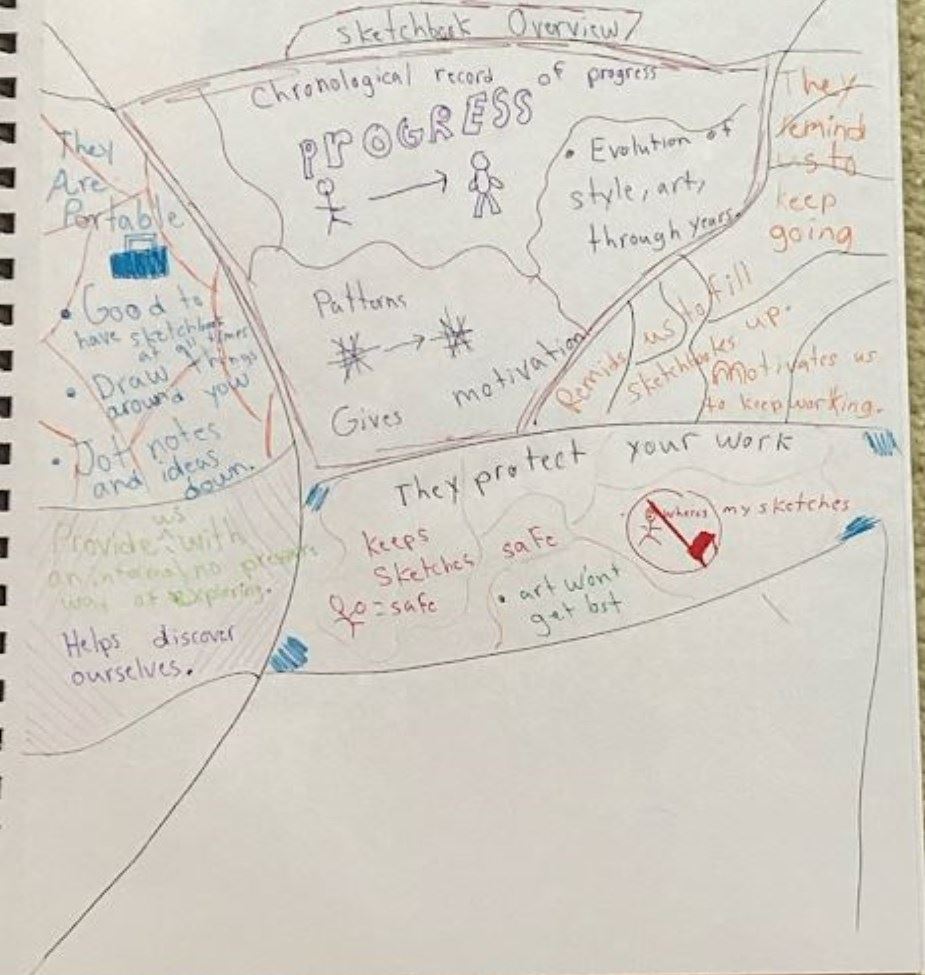 Sketchbook Overview
Chronological record of progress
PROGRESS
• Evolution of
style, art,
through years.
Patterns
Gives motivation
They
Are
Portable
• Good to
have sketchbook
at all times
• Draw things
around you
• Jot notes
and ideas
down.
They
remind
us to
keep
going
Reminds us to fill
sketchbooks up.
Motivates us
to keep working.
They protect your work
keeps
Sketches safe
= safe
• art wont
get lost
wheres my sketches
us
Provide with
an informal, no pressure
way of exploring.
Helps discover
ourselves.